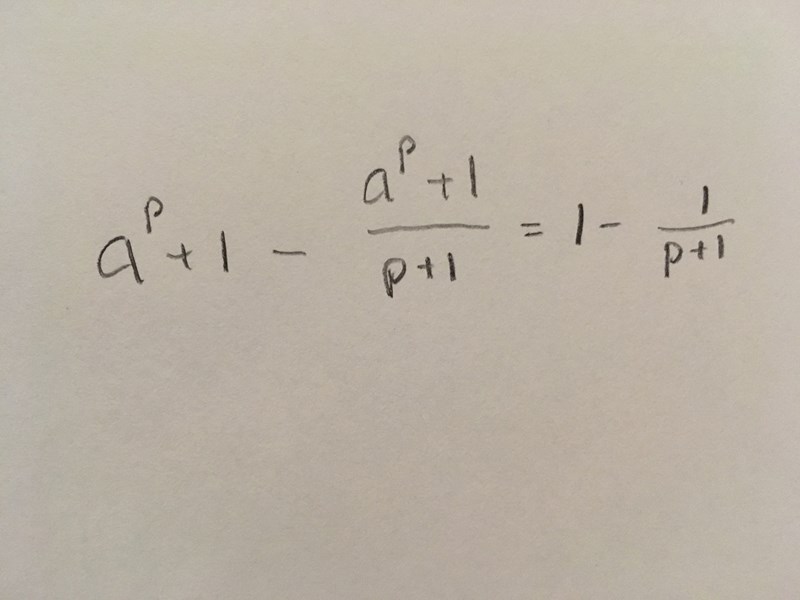 a^p + 1 - \frac{a^p + 1}{p + 1} = 1 - \frac{1}{p + 1}